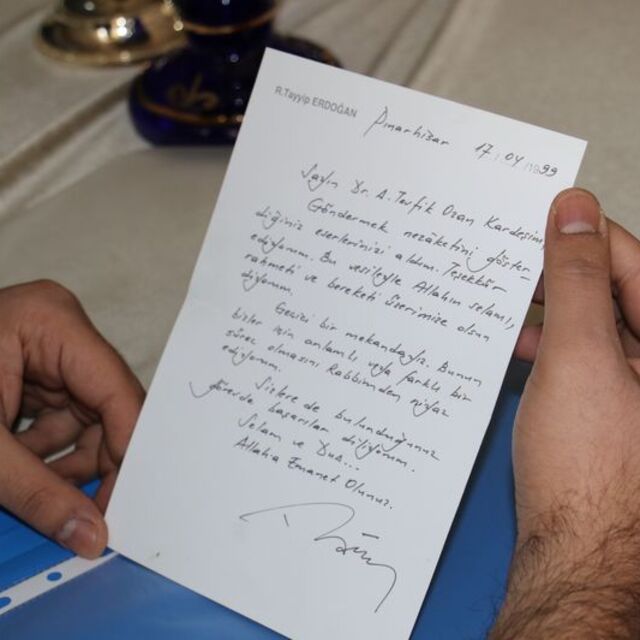 R.Tayyip ERDOĞAN
Pınarhisar 17/04/1999
Sayın Dr. A. Tevfik Ozan Kardeşim,
Göndermek nezâketini göster
diğiniz eserlerinizi aldım. Teşekkür
ediyorum. Bu vesileyle Allahın selamı,
rahmeti ve bereketi üzerimize olsun
diyorum.
Geçici bir mekandayız. Bunun
bizler için anlamlı, veya farklı bir
süreç olmasını Rabbimden niyaz
ediyorum.
Sizlere de bulunduğunuz
görevde başarılar diliyorum.
Selam ve Dua...
Allaha Emanet Olunuz.